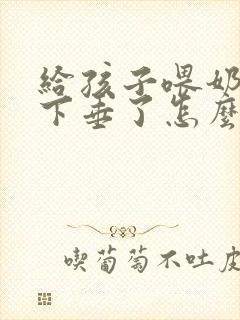 給孩子喂奶
下垂了怎麼
喫葡萄不吐皮